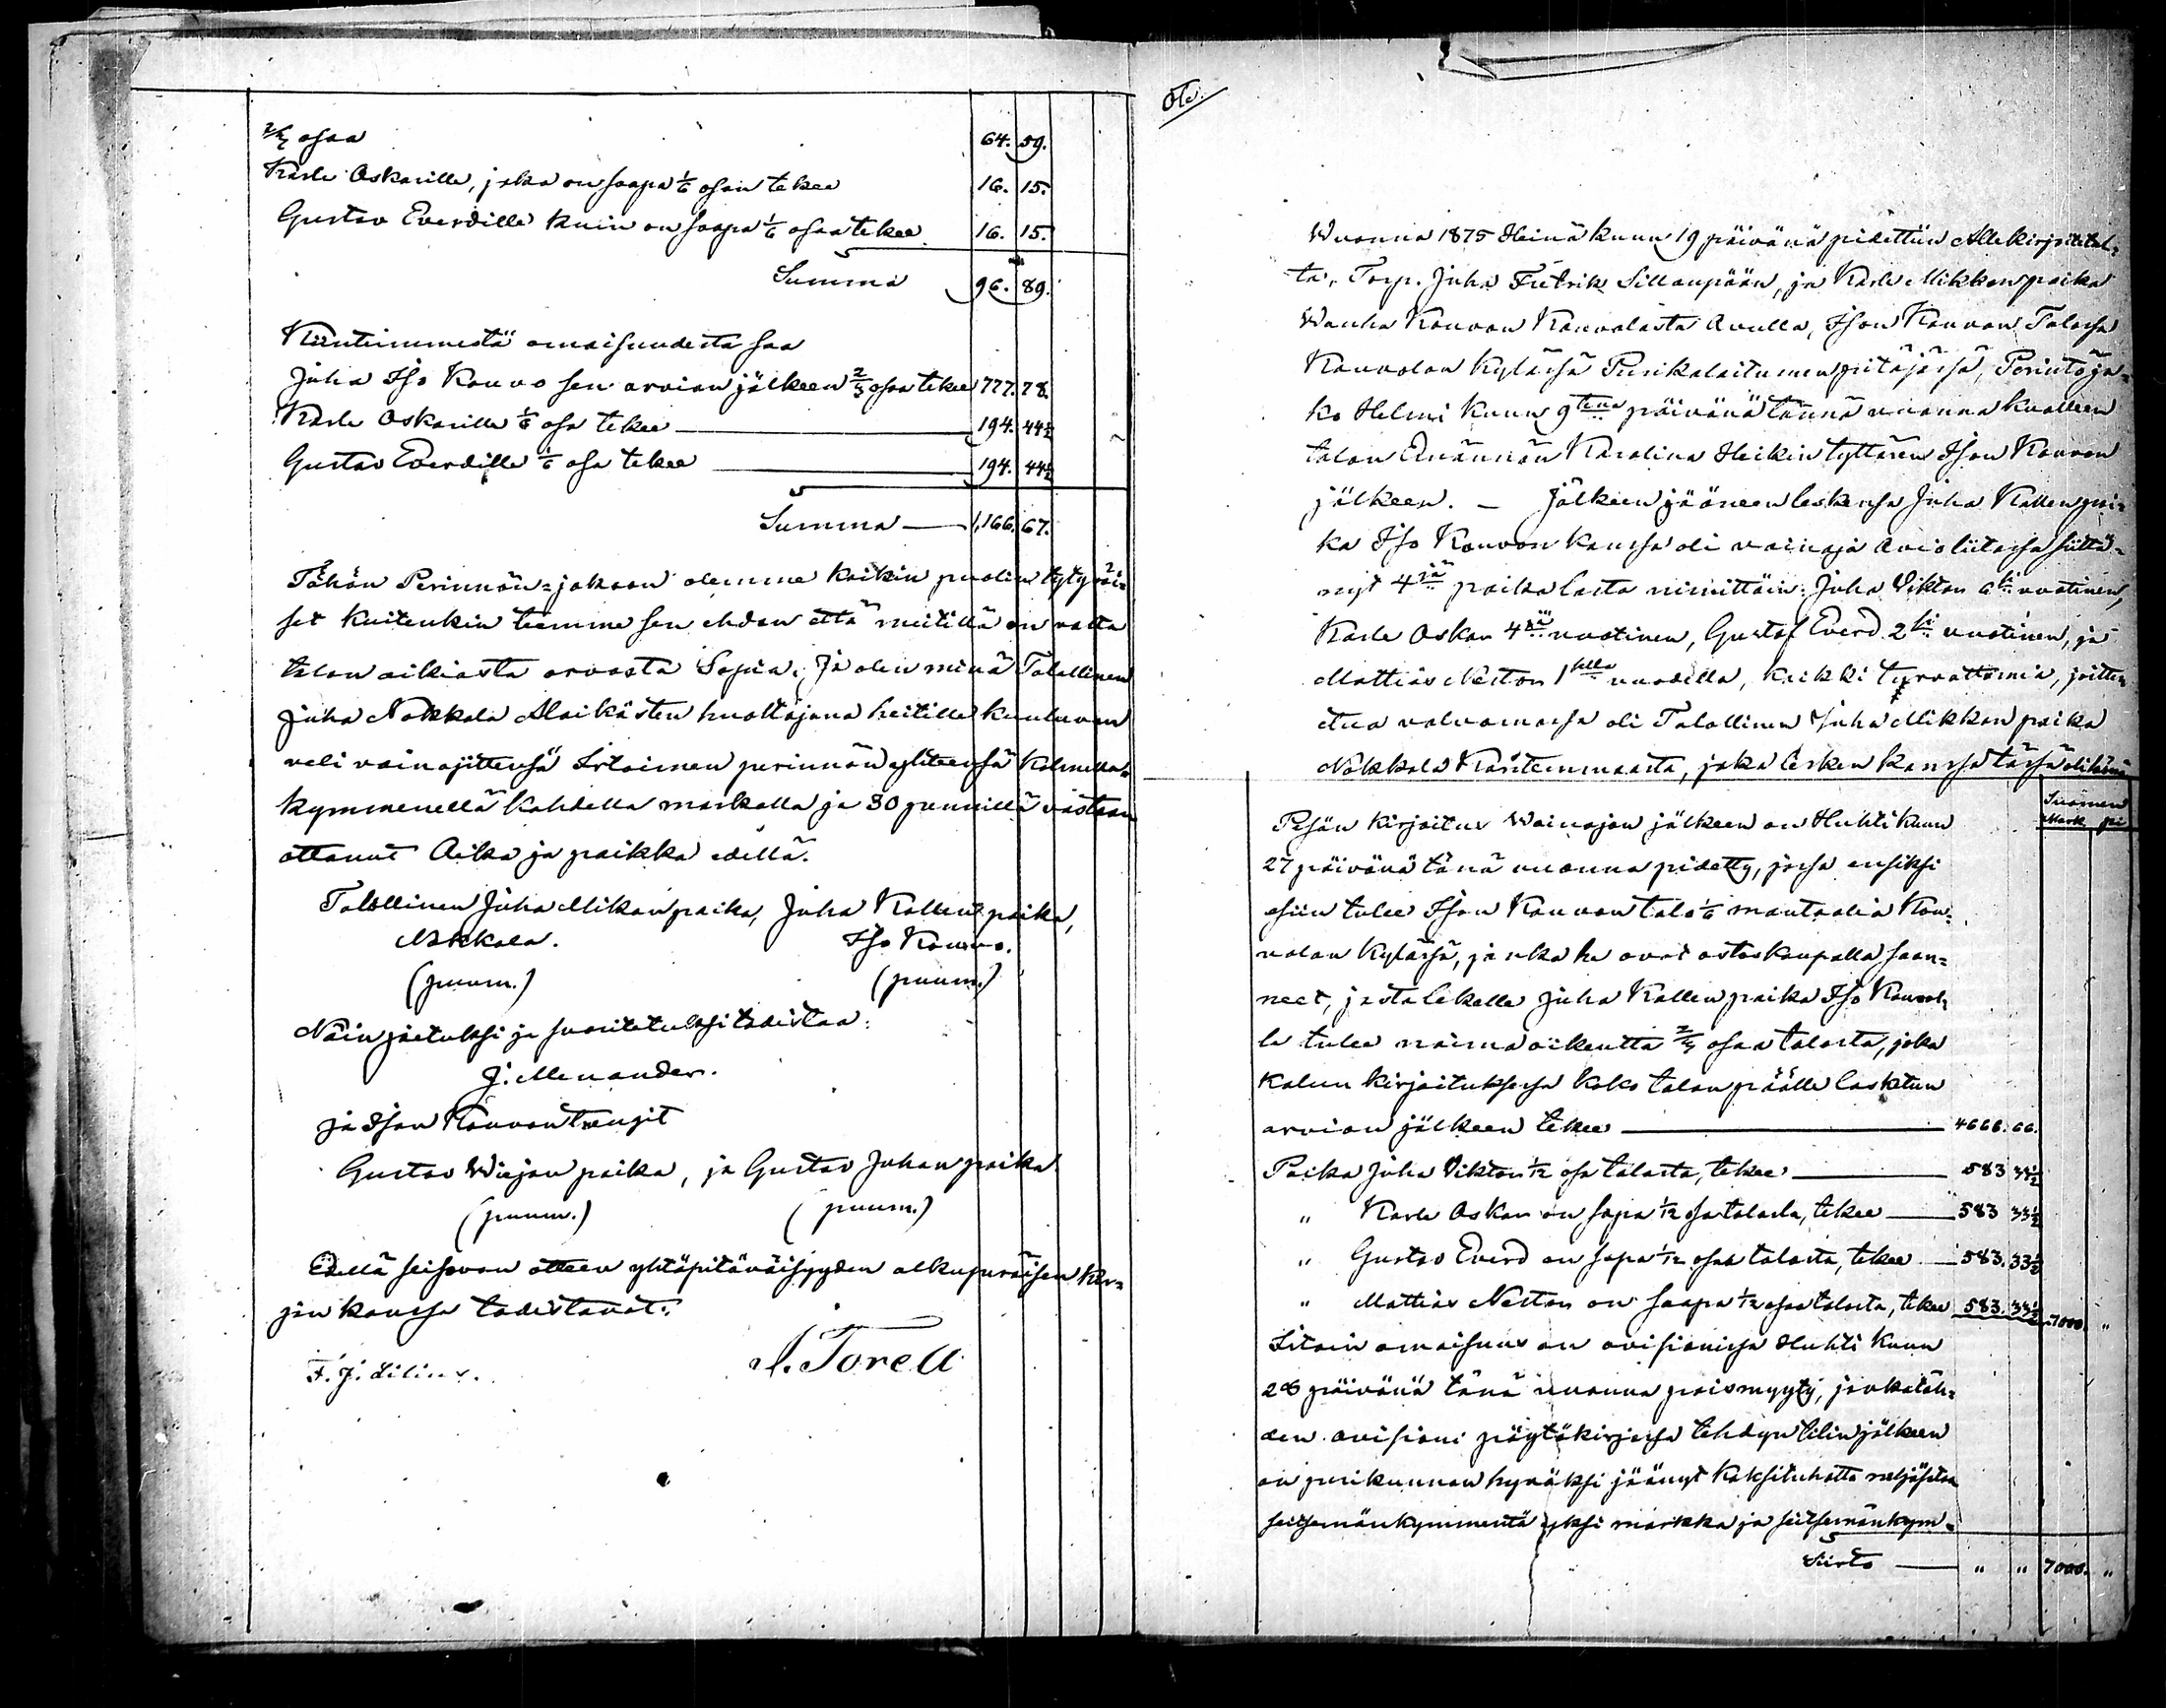 2/3 osaa 64. 59.
Karle Oskarille, joka on saapa 1/6 osan tekee 16. 15.
Gustav Everdille kuin on saapa 1/6 osaa tekee 16. 15.
Summa 96. 89.
Kiinteimmestä omaisuudesta saa
Juha Iso Kouvo sen arvion jälkeen 2/3 osaa tekee 777. 78.
Karle Oskarille 1/6 osa tekee 194. 44½
Gustav Everdille 1/6 osa tekee 194. 44½
Summa 1,166. 67.
Tähän Perinnön=jakoon olemme kaikin puolin tytyväi=
set kuitenkin teemme sen ehdon että meitillä on valta
talon oikiasta arvosta Sopia; Ja olen minä Talollinen
Juha Nokkala Alaikästen huoltajana heitille kuuluvan
veli vainajittensa Irtoimen perinnön yhteensä Kolmella=
kymmenellä kahdella markalla ja 30 pennillä vastaan
ottanut Aika ja paikka edellä.
Talollinen Juha Mikanpoika, Juha Kallenpoika,
Nokkala. Iso Kouvo.
(puum.) (puum.)
Näin jaetuksi ja suoritetuksi todistaa:
J. Menander.
ja Ison Kouvon rengit
Gustav Wiejan poika, ja Gustav Juhan poika
(puum.) (puum.)
Edellä seisovan otteen yhtäpitäväisyyden alkuperäisen kir=
jan kanssa todistavat:
F. J. Lilius. A. Torell
Ote.
Wuonna 1875 Heinäkuun 19 päivänä pidettiin Allekirjoitetul=
ta, Torp. Juha Fretrik Sillanpään, ja Karle Mikkonpoika
Wanha Kouvon Kouvolasta avulla, Ison Kouvon Talossa
Kouvolan Kylässä Pusikalaitumen pitäjässä, Perintöja=
ko Helmi kuun 9tenä päivänä tännä vuonna kuolleen
talon Emännän Karolina Heikin tyttären Ison Kouvon
jälkeen. — Jälkeen jääneen leskensä Juha Kallen poi=
ka Iso Kouvon kanssa oli vainaja Avioliitossa siittä=
nyt 4jä poika lasta nimittäin: Juha Viktor 6si vuotinen,
Karle Oskar 4jä vuotinen, Gustaf Everd 2si vuotinen, ja
Mattias Nestor 1sellä vuodella, kaikki turvattomia, joitten
etua valvomassa oli Talollinen Juha Mikkon poika
Nokkala Kärstemmaasta, joka lesken kanssa tässä oli läsnä
Suomen
Mark pi
Pesän Kirjoitus Wainajan jälkeen on Huhtikuun
27 päivänä tänä vuonna pidetty, jossa ensiksi
esiin tulee Ison Kouvon talo 1/6 mantaalia Kou=
volan kylässä, jonka he ovat ostoskaupalla saan=
neet, josta leskelle Juha Kallen poika Iso Kouvol=
le tulee naimaoikeutta 2/3 osaa talosta, joka
kalun kirjoituksessa koko talon päälle lasketun
arvion jälkeen tekee 4666. 66.
Poika Juha Viktor 1/12 osa talosta, tekee 583 33½
„ Karle Oskar on sapa 1/12 osa talosta, tekee 583 33½
„ Gustav Everd on sapa 1/12 osaa talosta, tekee 583. 33½
„ Mattias Nestor on saapa 1/12 osaa talosta, tekee 583. 33½ 7000 „
Irtain omaisuus on avisionissa Huhti kuun
28 päivänä tänä vuonna pois myyty, jonkatäh=
den avisioni pöytäkirjassa tehdyn tilin jälkeen
on perikunnan hyväksi jäänyt kaksituhatta neljäsataa
seitsemänkymmentä yksi markka ja seitsemänkym=
Siirto „ „ 7000. „